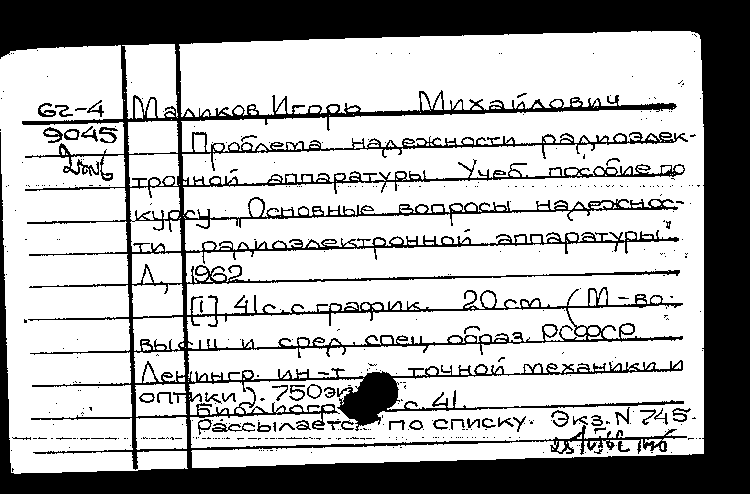 62-4 Маликов, Игорь Михайлович
9045
Проблема надежности радиоэлек-
тронной аппаратуры Учеб. пособие по
курсу „Основные вопросы надежнос-
ти радиоэлектронной аппаратуры"
Л, 1962.
[1], 41 с. с график. 20 см. (М-во.
высш и сред. спец. образ. РСФСР.
Ленингр. ин-т точной механики и
оптики). 750 эк
Библиогр с. 41.
Рассылается по списку. Экз. N 745.